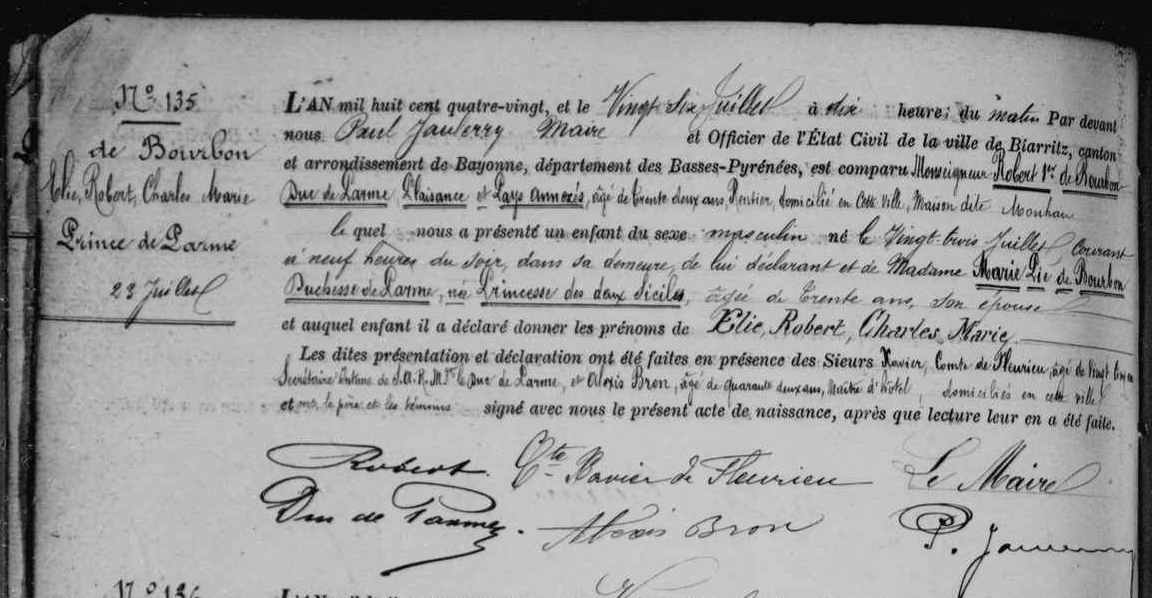 N° 135
de Bourbon
Elie, Robert, Charles Marie
Prince de Parme
23 Juillet
L'AN mil huit cent quatre-vingt, et le Vingt Six Juillet à dix heures du matin Par devant
nous Paul Jaulerry Maire et Officier de l'État Civil de la ville de Biarritz, canton
et arrondissement de Bayonne, département des Basses-Pyrénées, est comparu Monseigneur Robert 1er de Bourbon
Duc de Parme, Plaisance et Pays Annexés, âgé de trente deux ans, Rentier, domicilié en cette ville, Maison dite
le quel nous a présenté un enfant du sexe masculin né le Vingt-trois Juillet courant
à neuf heures du soir, dans sa demeure, de lui déclarant et de Madame Marie Pie de Bourbon
Duchesse de Parme, née Princesse des deux Siciles, âgée de trente ans, son épouse
et auquel enfant il a déclaré donner les prénoms de Elie, Robert, Charles, Marie.
Les dites présentation et déclaration ont été faites en présence des Sieurs Xavier, Comte de Fleurieu, âgé de vingt
Secrétaire intime de S.A.R. Mgr le Duc de Parme, et Alexis Bron, âgé de quarante deux ans, Maître d'hôtel, domiciliés en cette ville
et ont, le père et les témoins signé avec nous le présent acte de naissance, après que lecture leur en a été faite.
Robert. Cte Xavier de Fleurieu Le Maire
Duc de Parme. Alexis Bron P. Jaulerry
N° 136
L'AN